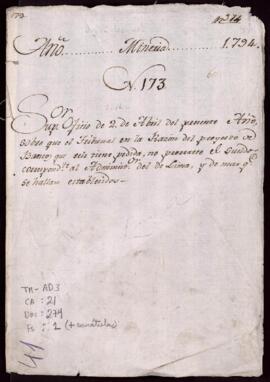 173
274
Año Mineria 1.794.
N. 173.
Sor
Supr. Oficio de 2. de Abril del presente Año,
sobre que el Tribunal en la Razon del proyecto de
Banco, que seis tiene pedida, no persente el sueldo
correspond.te al Administ.r del de Lima, y de mas q.e
se hallan establecidos.
TM-AD3
CA: 21
Doc: 274
Fs: 1 (+ carátula)